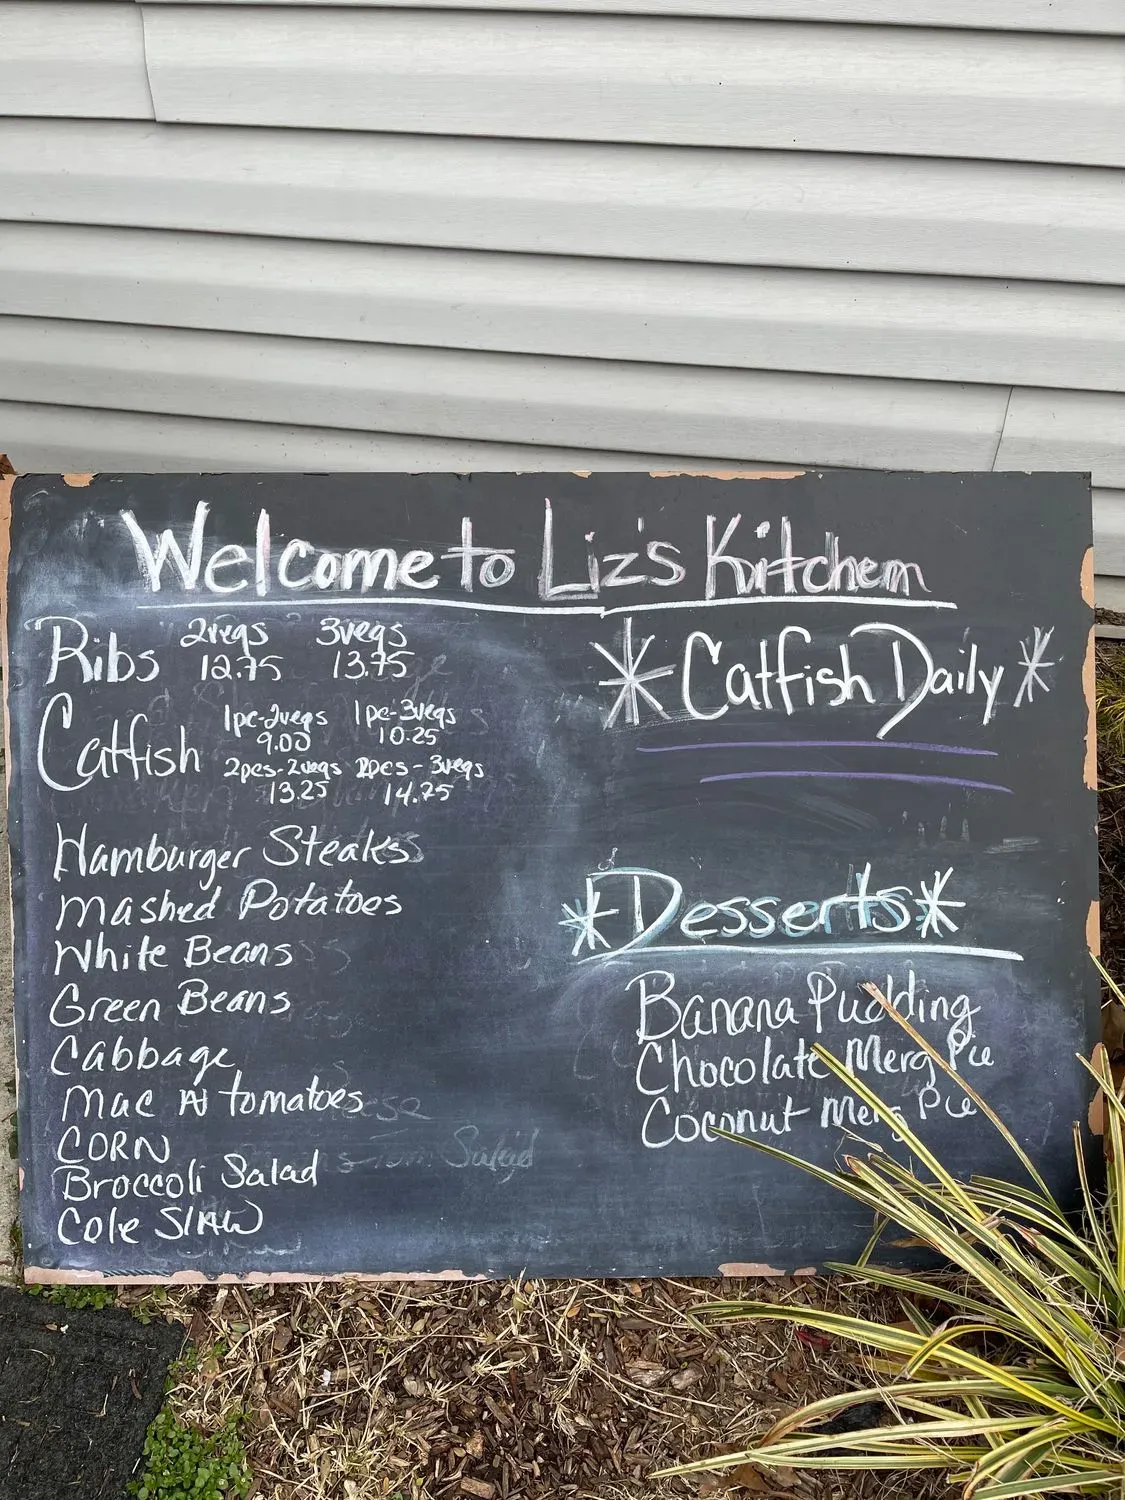 Welcome to Liz's Kitchen
Ribs 2vegs 3vegs
12.75 13.75
Catfish 1pc-2vegs 1pc-3vegs
9.00 10.25
2pcs-2vegs 2pcs-3vegs
13.25 14.25
Hamburger Steaks
Mashed Potatoes
White Beans
Green Beans
Cabbage
Mac N tomatoes
CORN
Broccoli Salad
Cole SlAW
*Catfish Daily*
*Desserts*
Banana Pudding
Chocolate Merg Pie
Coconut Merg Pie